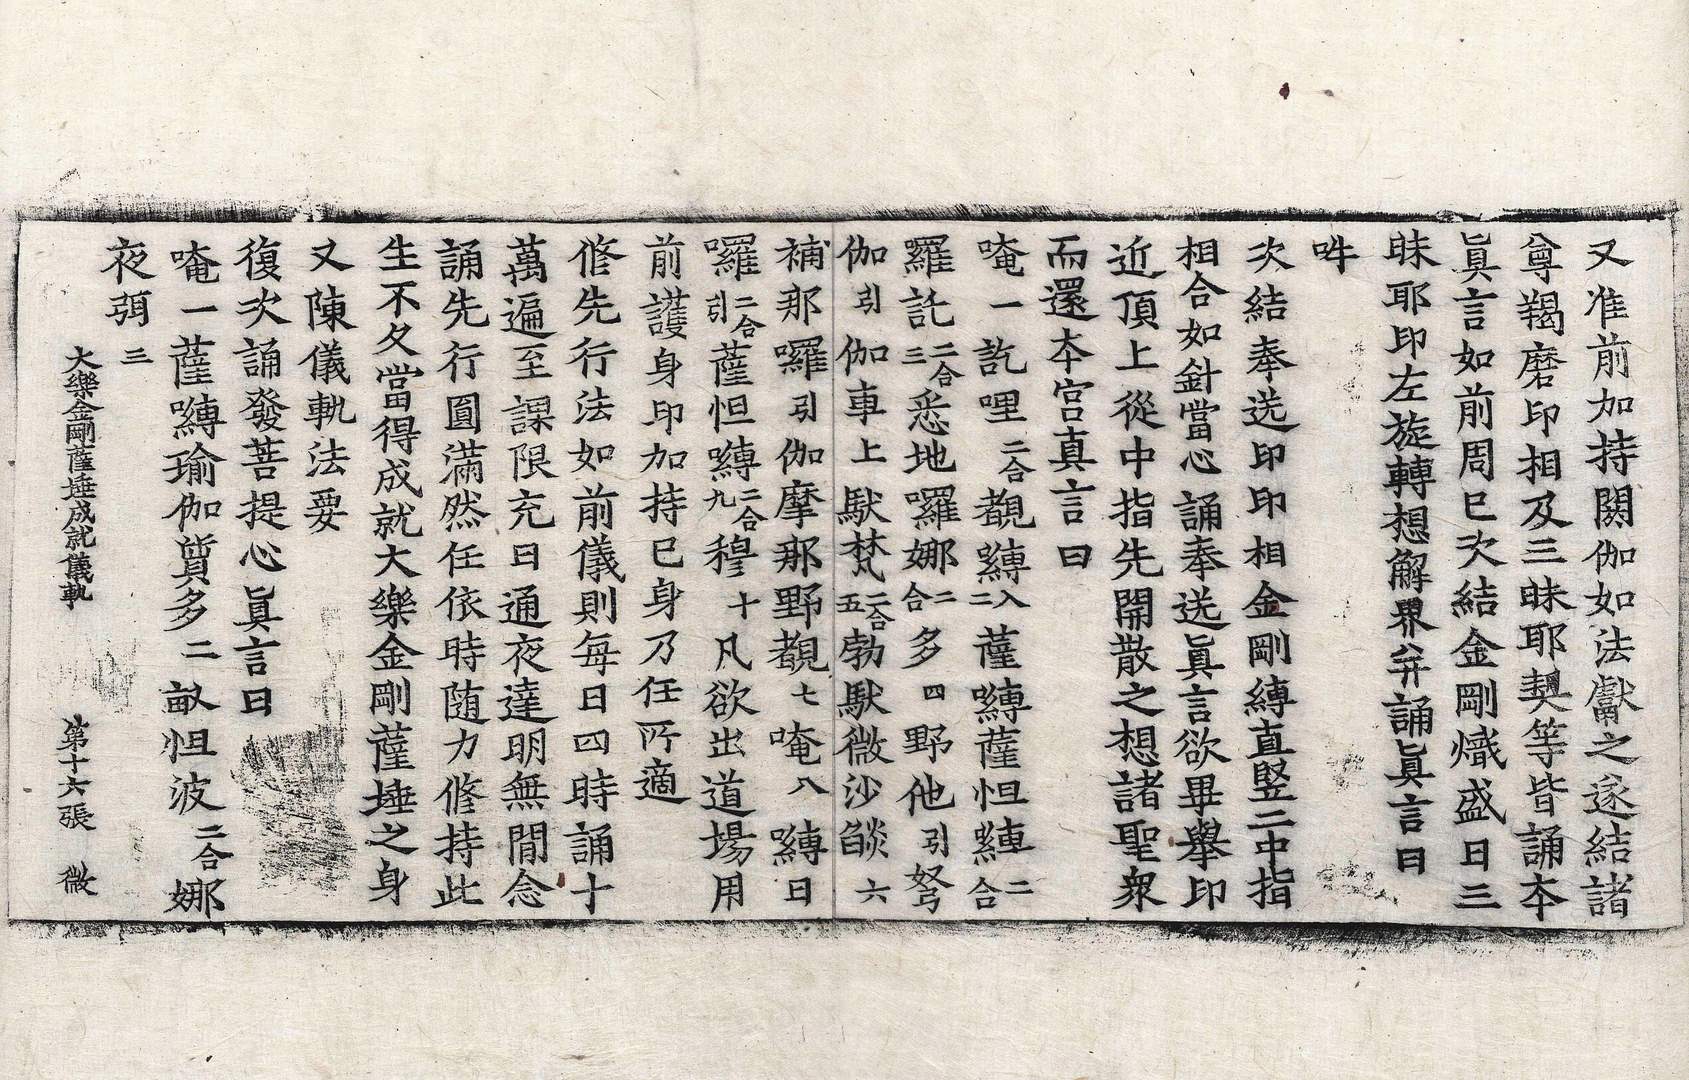 又准前加持閼伽如法獻之遂結諸
尊羯磨印相及三昧耶契等皆誦本
眞言如前周已次結金剛熾盛日三
昧耶印左旋轉想解界幷誦眞言曰
吽
次結奉送印印相金剛縛直竪二中指
相合如針當心誦奉送眞言欲畢擧印
近頂上從中指先開散之想諸聖衆
而還本宮真言曰
唵一訖哩二合覩嚩入二薩嚩薩怛嚩二合
囉託二合三悉地囉娜二合多四野他引弩
伽引伽車上馱梵二合五勃馱微沙焰六
補那囉引伽摩那野覩七唵八嚩日
囉二合引薩怛嚩二合九穆十凡欲出道場用
前護身印加持已身乃任所適
修先行法如前儀則每日四時誦十
萬遍至課限充日通夜達明無間念
誦先行圓滿然任依時随力修持此
生不久當得成就大樂金剛薩埵之身
又陳儀軌法要
復次誦發菩提心眞言曰
唵一薩嚩瑜伽質多二畝怛波二合娜
夜弭三
大樂金剛薩埵成就儀軌 第十六張 微